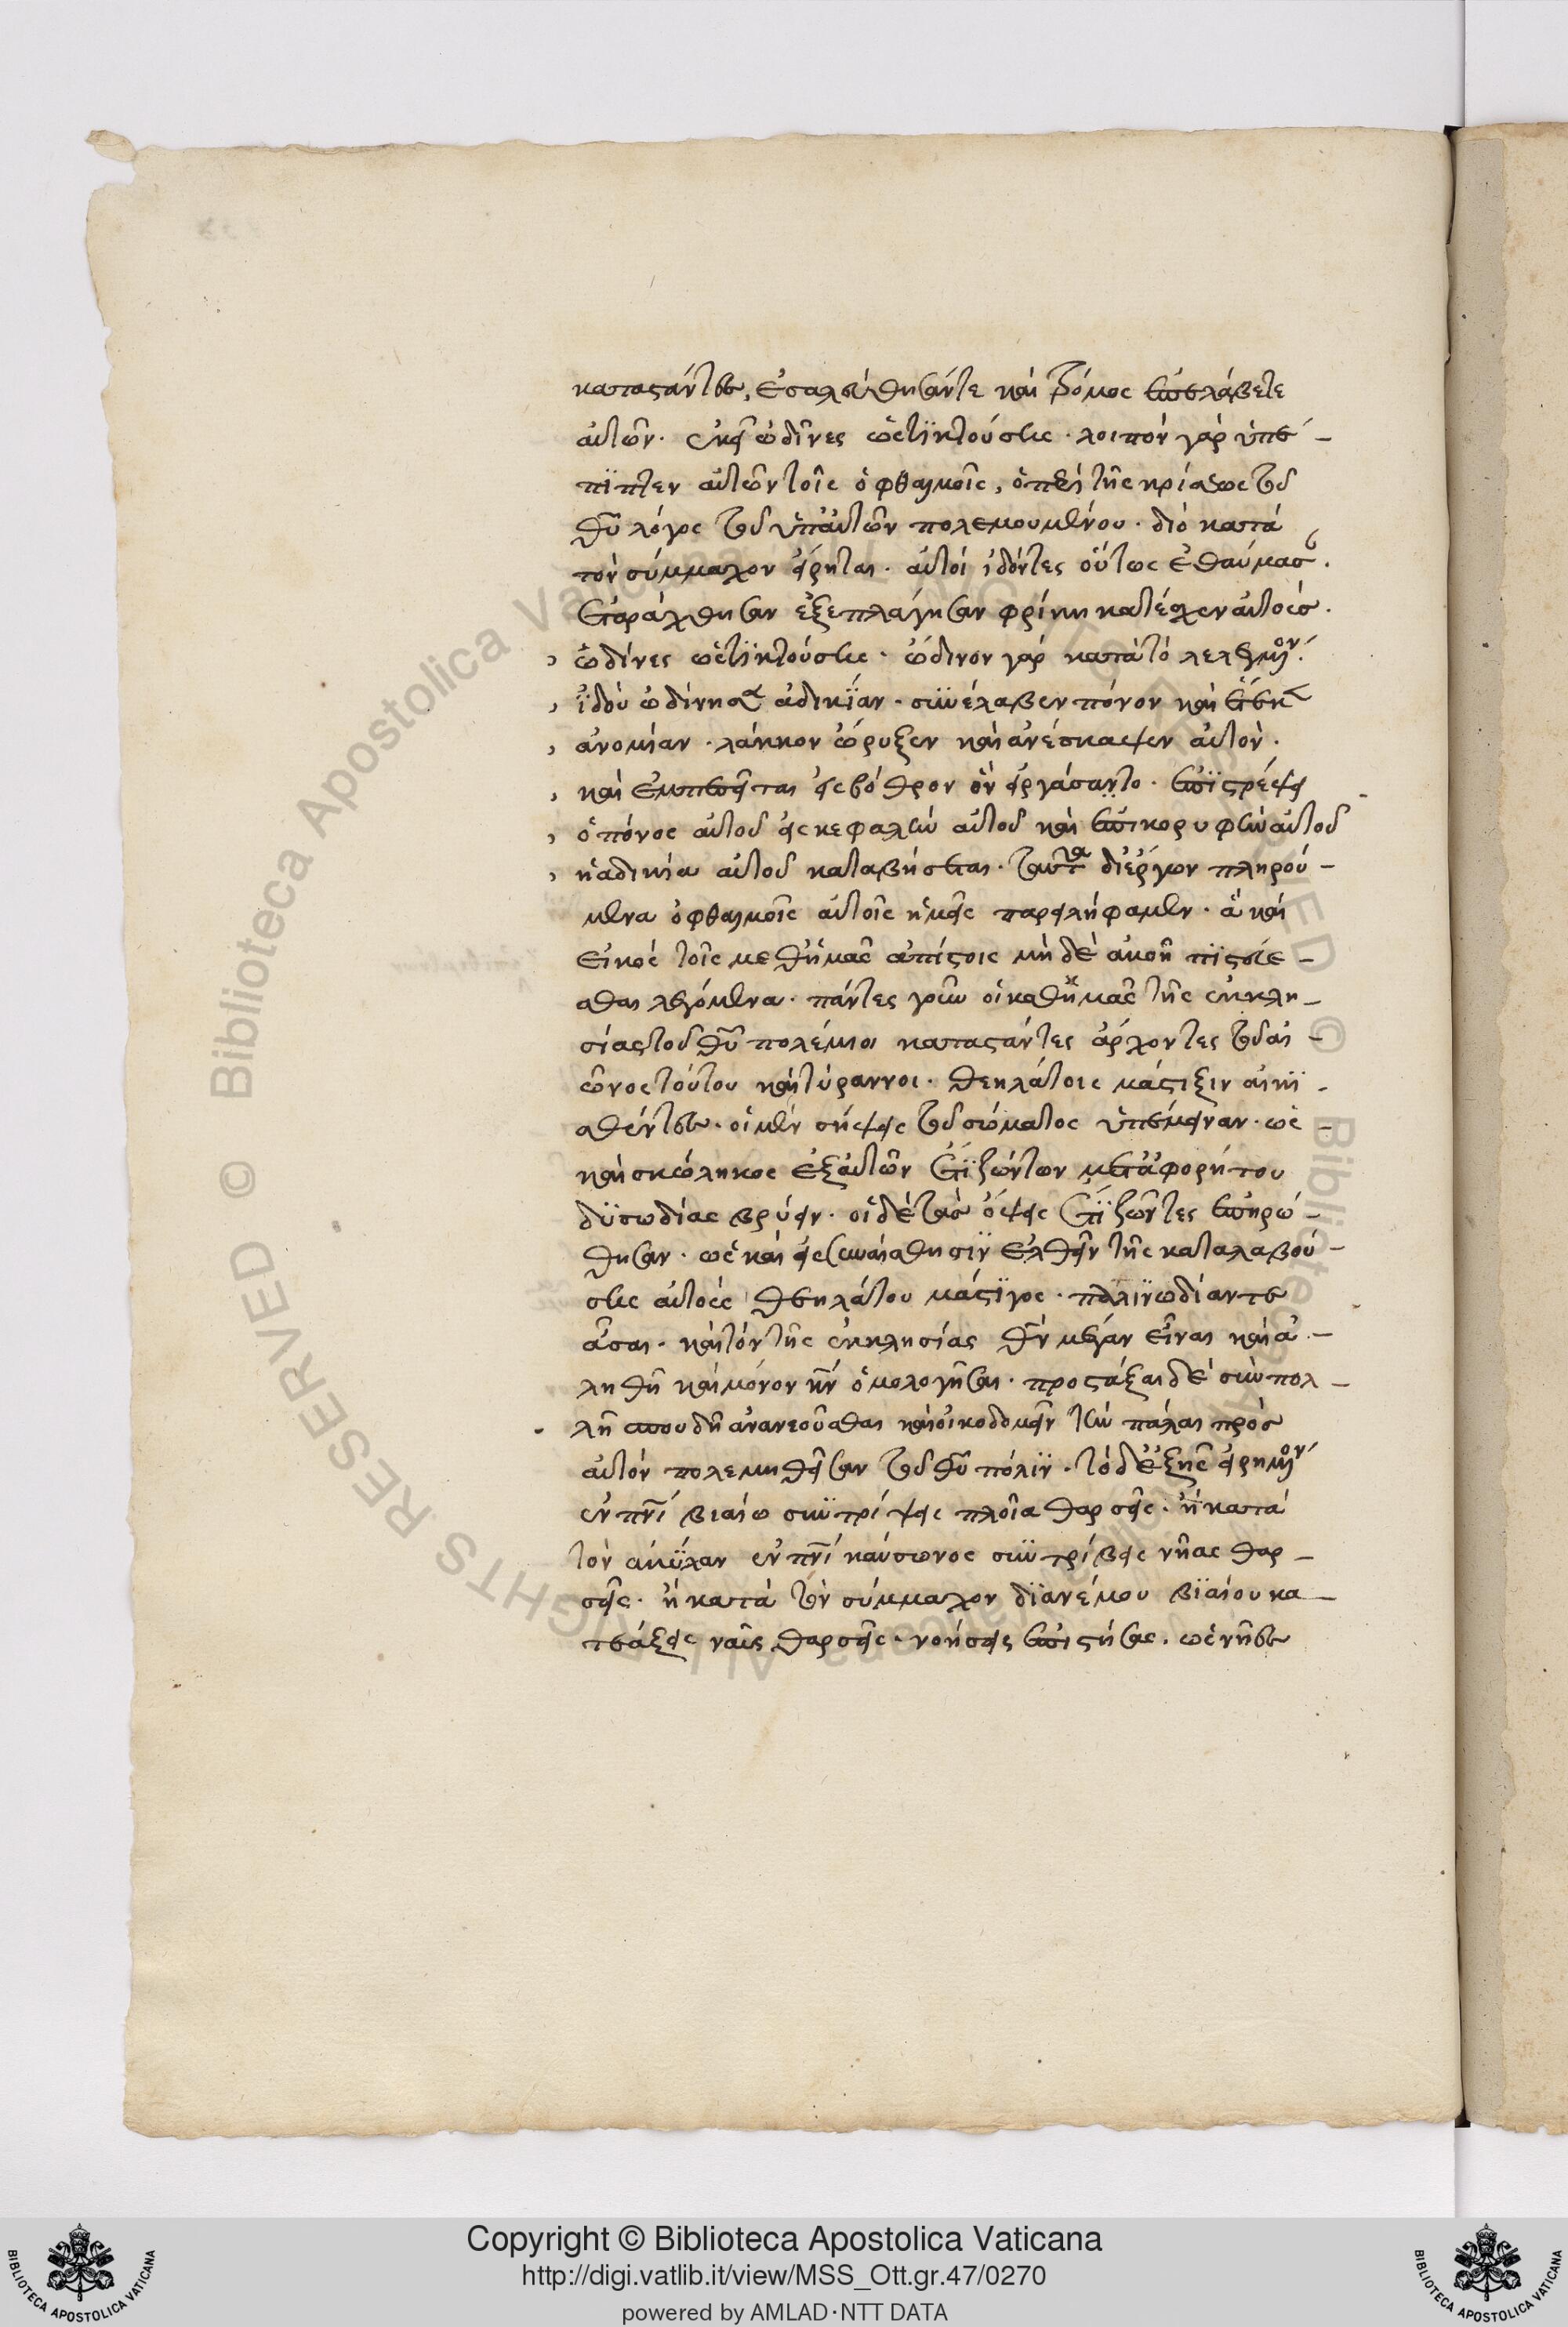 καταστάντες, ἐσαλεύθησάν τε καὶ τρόμος ἐπελάβετο
αὐτῶν. ἐκεῖ ὠδῖνες ὡς τϊκτούσης. λοιπὸν γὰρ ὑπέ-
πϊπτεν αὐτῶν τοῖς ὀφθαλμοῖς, ὁ περὶ τῆς κρίσεως τοῦ
θῦ λόγος τοῦ ὑπ' αὐτῶν πολεμουμένου. διὸ κατὰ
τὸν σύμμαχον εἴρηται. αὐτοὶ ἰδόντες οὕτως ἐθαύμασ.
ἐταράχθησαν ἐξεπλάγησαν φρίκη κατέσχεν αὐτούς.
ὠδίνες ὡς τϊκτούσης. ὤδινον γὰρ κατὰ τὸ λελεγμένον.
ἰδοὺ ὠδίνησεν ἀδικΐαν. συνέλαβεν πόνον καὶ ἔτεκεν
ἀνομίαν. λάκκον ὤρυξεν καὶ ἀνέσκαψεν αὐτόν.
καὶ ἐμπεσεῖται εἰς βόθρον ὃν εἰργάσαντο. ἐπϊστρέψει
ὁ πόνος αὐτοῦ εἰς κεφαλὴν αὐτοῦ καὶ ἐπὶ κορυφὴν αὐτοῦ
ἡ ἀδικία αὐτοῦ καταβήσεται. ταῦτα δι' ἔργων πληρού-
μενα ὀφθαλμοῖς αὐτοῖς ἡμεῖς παρειλήφαμεν. ἃ καὶ
εἰκὸς τοῖς μεθ' ἡμᾶς ἀπίστοις μὴ δὲ ἀκοῇ πϊστεύε-
σθαι λεγόμενα. πάντες γοῦν οἱ καθ' ἡμᾶς τῆς ἐκκλη-
σίας τοῦ θῦ πολέμιοι καταστάντες ἄρχοντες τοῦ αἰ-
ῶνος τούτου καὶ τύραννοι. θεηλάτοις μάστιξιν αἰκϊ-
σθέντες. οἱ μὲν σήψεις τοῦ σώματος ὑπέμειναν. ὡς
καὶ σκώληκος ἐξ αὐτῶν ἔτϊ ζώντων μετὰ ἀφορήτου
δϋσωδίας βρύειν. οἱ δὲ τὰς ὄψεις ἔτϊ ζῶντες ἐπηρώ-
θησαν. ὡς καὶ εἰς συναίσθησϊν ἐλθεῖν τῆς καταλαβού-
σης αὐτοὺς θεηλάτου μάστϊγος. παλινωδίαν τε
ᾆσαι. καὶ τὸν τῆς ἐκκλησίας θν μέγαν εἶναι καὶ ἀ-
ληθῆ καὶ μόνον θν ὁμολογῆσαι. προστάξαι δὲ σὺν πολ-
λῇ σπουδῇ ἀνανεοῦσθαι καὶ οἰκοδομεῖν τὴν πάλαι πρὸς
αὐτῶν πολεμηθεῖσαν τοῦ θῦ πόλϊν. τὸ δ' ἑξῆς εἰρημένον
ἐν πνι βιαίω συντρίψεις πλοῖα θαρσεῖς. ἢ κατὰ
τὸν ἀκύλαν ἐν πνι καύσωνος συντρίβεις νῆας θαρ-
σεῖς. ἢ κατὰ τὸν σύμμαχον δι' ἀνέμου βϊαίου κα-
τεάξεις ναῦς θαρσεῖς. νοήσεις ἐπιστήσας. ὡς νῆες
Copyright © Biblioteca Apostolica Vaticana
http://digi.vatlib.it/view/MSS_Ott.gr.47/0270
powered by AMLAD·NTT DATA